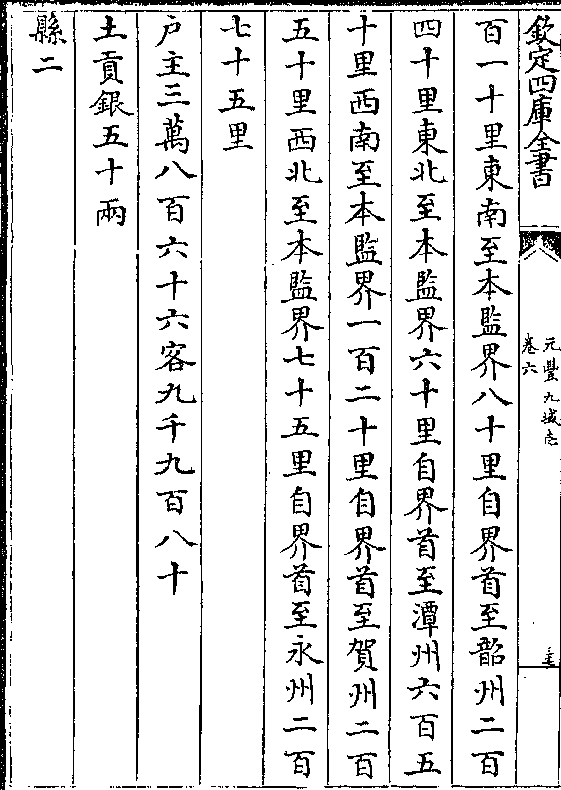 欽定四庫全書
元豐九域志
卷六
百一十里東南至本監界八十里自界首至韶州二百
四十里東北至本監界六十里自界首至潭州六百五
十里西南至本監界一百二十里自界首至賀州二百
五十里西北至本監界七十五里自界首至永州二百
七十五里
户主三萬八百六十六客九千九百八十
土貢銀五十兩
縣二